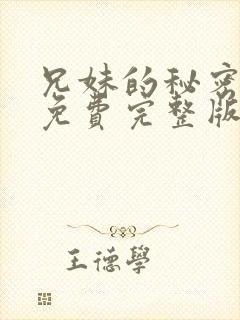 兄妹的秘密
免費完整版
王德學